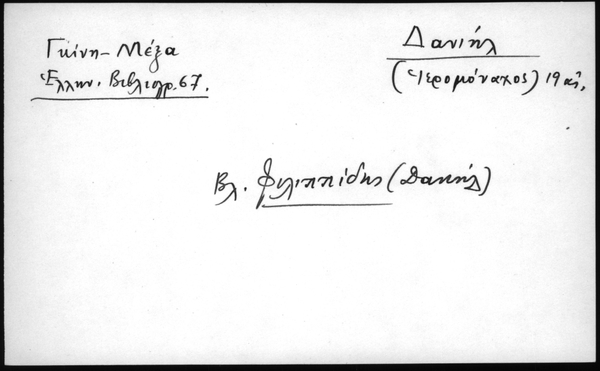 Γκίνη - Μέξα
Ἑλλην. Βιβλιογρ. 67.
Δανιήλ
(Ἱερομόναχος) 19 αἰ.
Βλ. Φιλιππίδης (Δανιήλ)